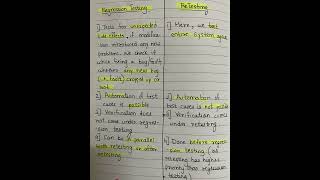 Regression Testing
1] Tests for unexpected
side effects, if modification
introduced any new
problems. We check if
while fixing a bug/fault
whether any new bug
(& fault) cropped up or
not.
2] Automation of test
cases is possible
3] Verification does
not come under regre-
ssion testing
4] Can be in parallel
with retesting or after
retesting
ReTesting
1] Here, we test
entire system again
2] Automation of
test cases is not possible
3] Verification comes
under retesting
4] Done before regres-
sion testing (as
retesting has higher
priority than regression
testing)